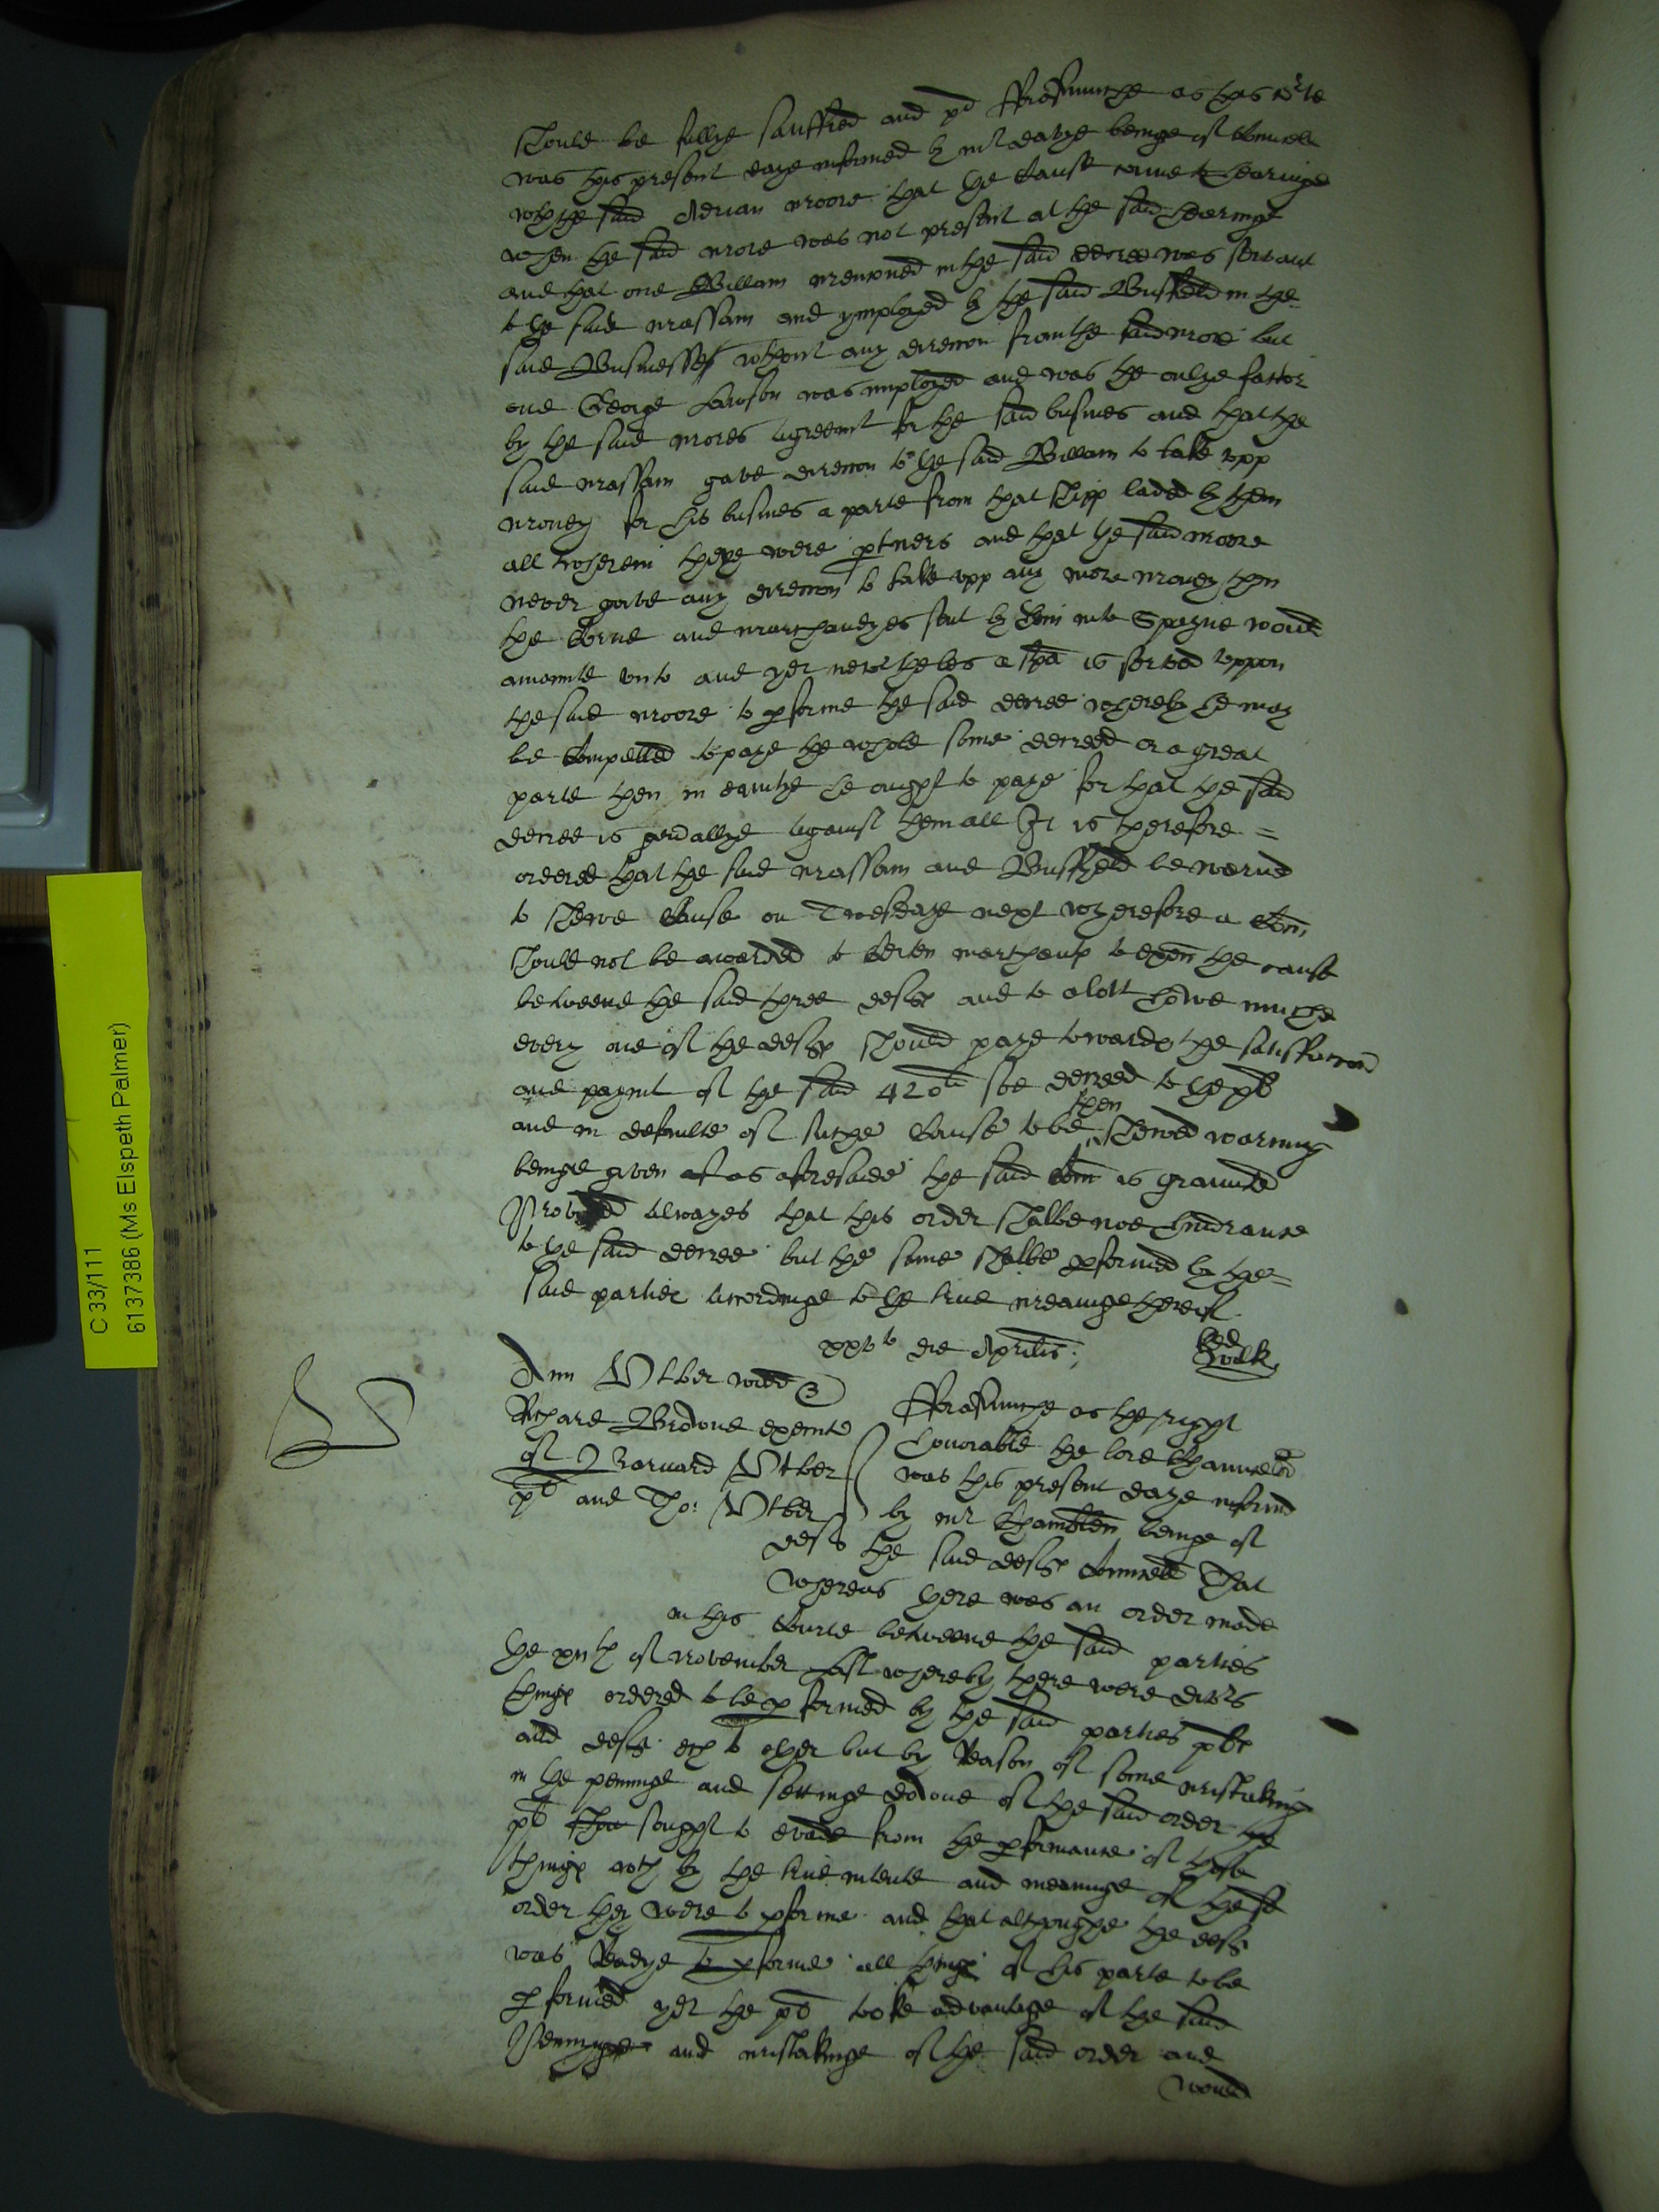 should be fullye satisfied and pd fforasmuche as this Cor͡te
was this present daye informed by mr davye beinge of Councell
wth the said Adrian moore that the Cause came to hearinge
when the said more was not present at the said hearinge
and that one Willam mencioned in the said decree was servant
to the said massam and ymployed by the said Busfeld in the
said Busynesses wthout any direccon from the said more but
one George Lawson was imployed and was the onlye factor
by the said mores agreemt for the said busines and that the
said massam gave direccon to the said Willam to take upp
money for his busines a parte from that shipp laded by them
all wherein theye were ptners and that the said moore
never gave any direccon to take upp any more money then
the Corne and marchandyes sent by him into Spayne would
amounte unto and yet nevertheles a spa is served uppon
the said moore to pforme the said decree whereby he may
be Compelled to paye the whole some decreed or a great
parte then in equitye he ought to paye for that the said
decree is genallye against them all It is therefore =
ordered that the said massam and Busfyeld be warned
to shewe Cause on Tuesdaye next wherefore a Com
should not be awarded to Certen marchants to exen the cause
betweene the said three defts and to alott howe muche
every one of the defts should paye towards the satisfaccon
and paymt of the said 420li soe decreed to the plt
and in defaulte of suche Cause to be then shewed warning
beinge given as aforesaide the said Com is graunted
Provided alwayes that this order shalbe noe hindrance
to the said decree but the same shalbe pformed by the =
said parties accordinge to the true meaninge thereof
xxvto die Aprilis
Ann Utber widd
Richard Browne executr
of Barnard Utber
plt and Tho: Utber
deft
fforasmuche as the right
honorable the lord Chauncelor
was this present daye informd
by mr Chamblen beinge of
the said defts Councell That
whereas there was an order made
in this Courte betweene the said parties
the xvith of november last whereby there were divrs
things ordered to be pformed by the said parties plts
and defts ech to other but by Reason of some mistaking
in the penninge and settinge downe of the said order the
plt sought to evade from the pformance of those
things wch by the true intente and meaninge of the sd
order they were to pforme and that althoughe the deft
was Readye to pforme all things of his parte to be
pformed yet the plt tooke advantage of the said
Penninge and mistakinge of the said order and
would
C 33/111
6137386 (Ms Elspeth Palmer)